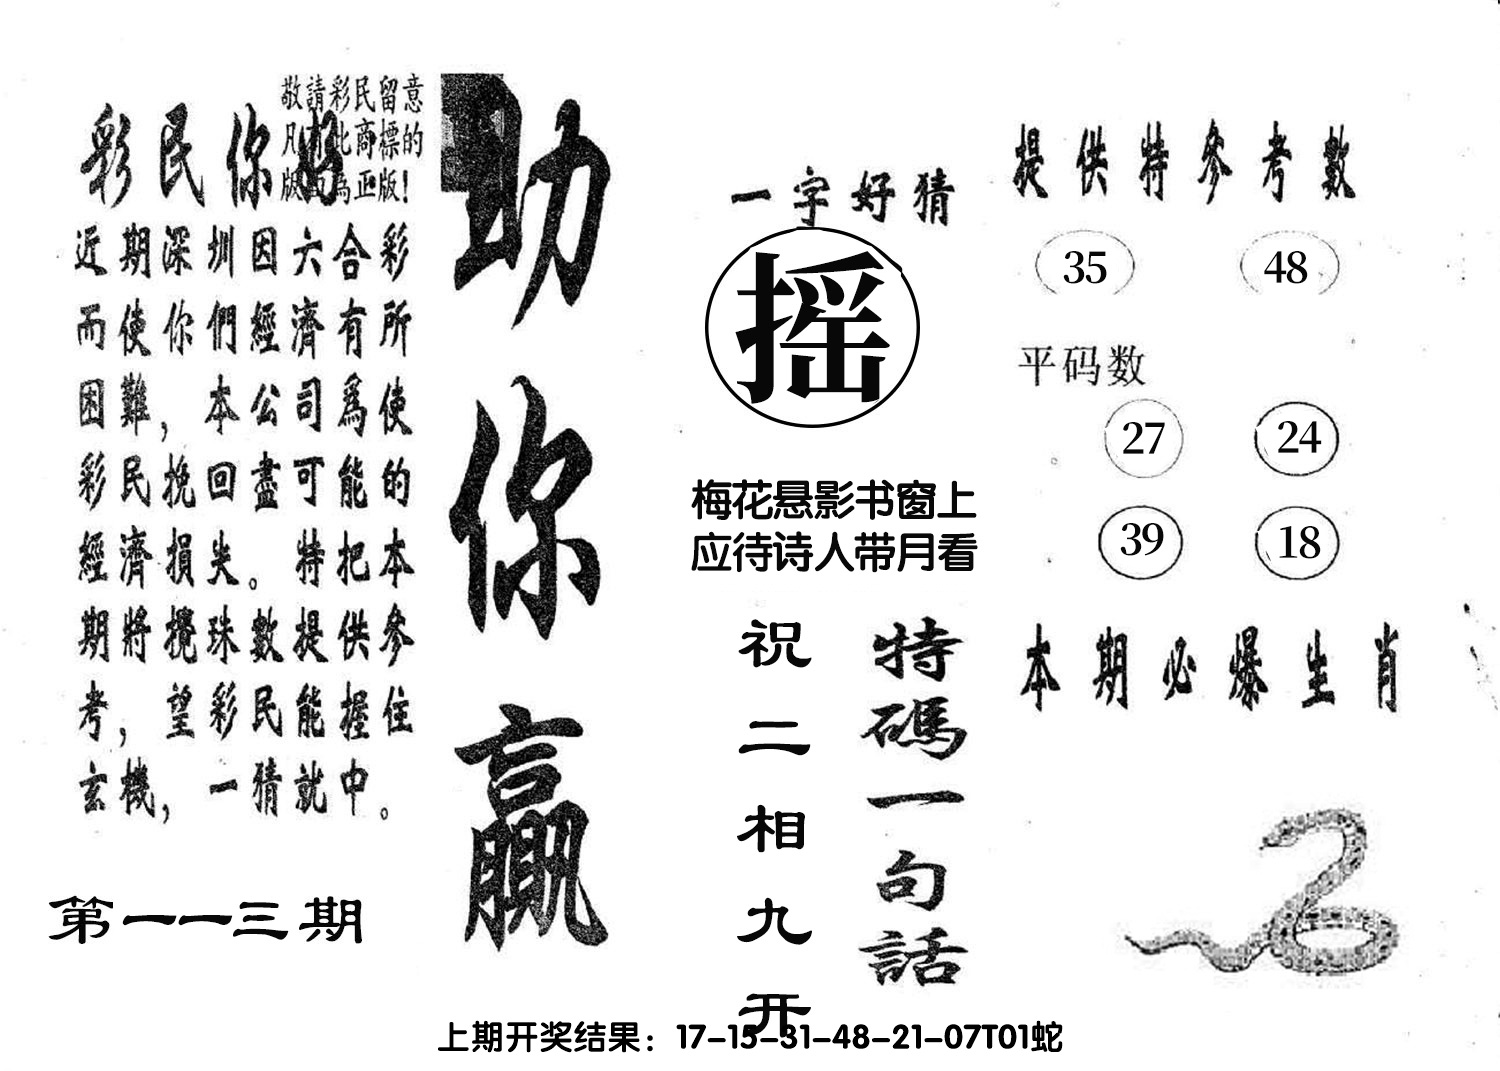 敬請彩民留意
凡有此商標的
版面為正版!
彩民你好
近期深圳因六合彩
而使你們經濟有所
困難，本公司爲使
彩民挽回盡可能的
經濟損失。特把本
期將攪珠數提供參
考，望彩民能握住
玄機，一猜就中。
第一一三期
助你贏
一字好猜
摇
梅花悬影书窗上
应待诗人带月看
特碼一句話
祝二相九开
提供特參考數
35 48
平码数
27 24
39 18
本期必爆生肖
上期开奖结果：17-15-31-48-21-07T01蛇